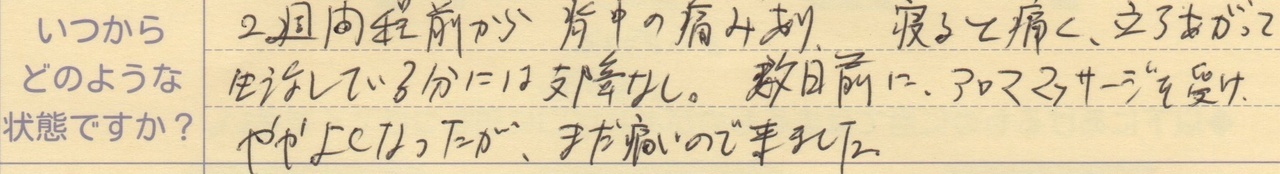 いつから
どのような
状態ですか？
2週間程前から 背中の痛みあり、 寝ると痛く、立ちあがって
生活している分には支障なし。 数日前に、アロママッサージを受け、
ややよくなったが、まだ痛いので来ました。